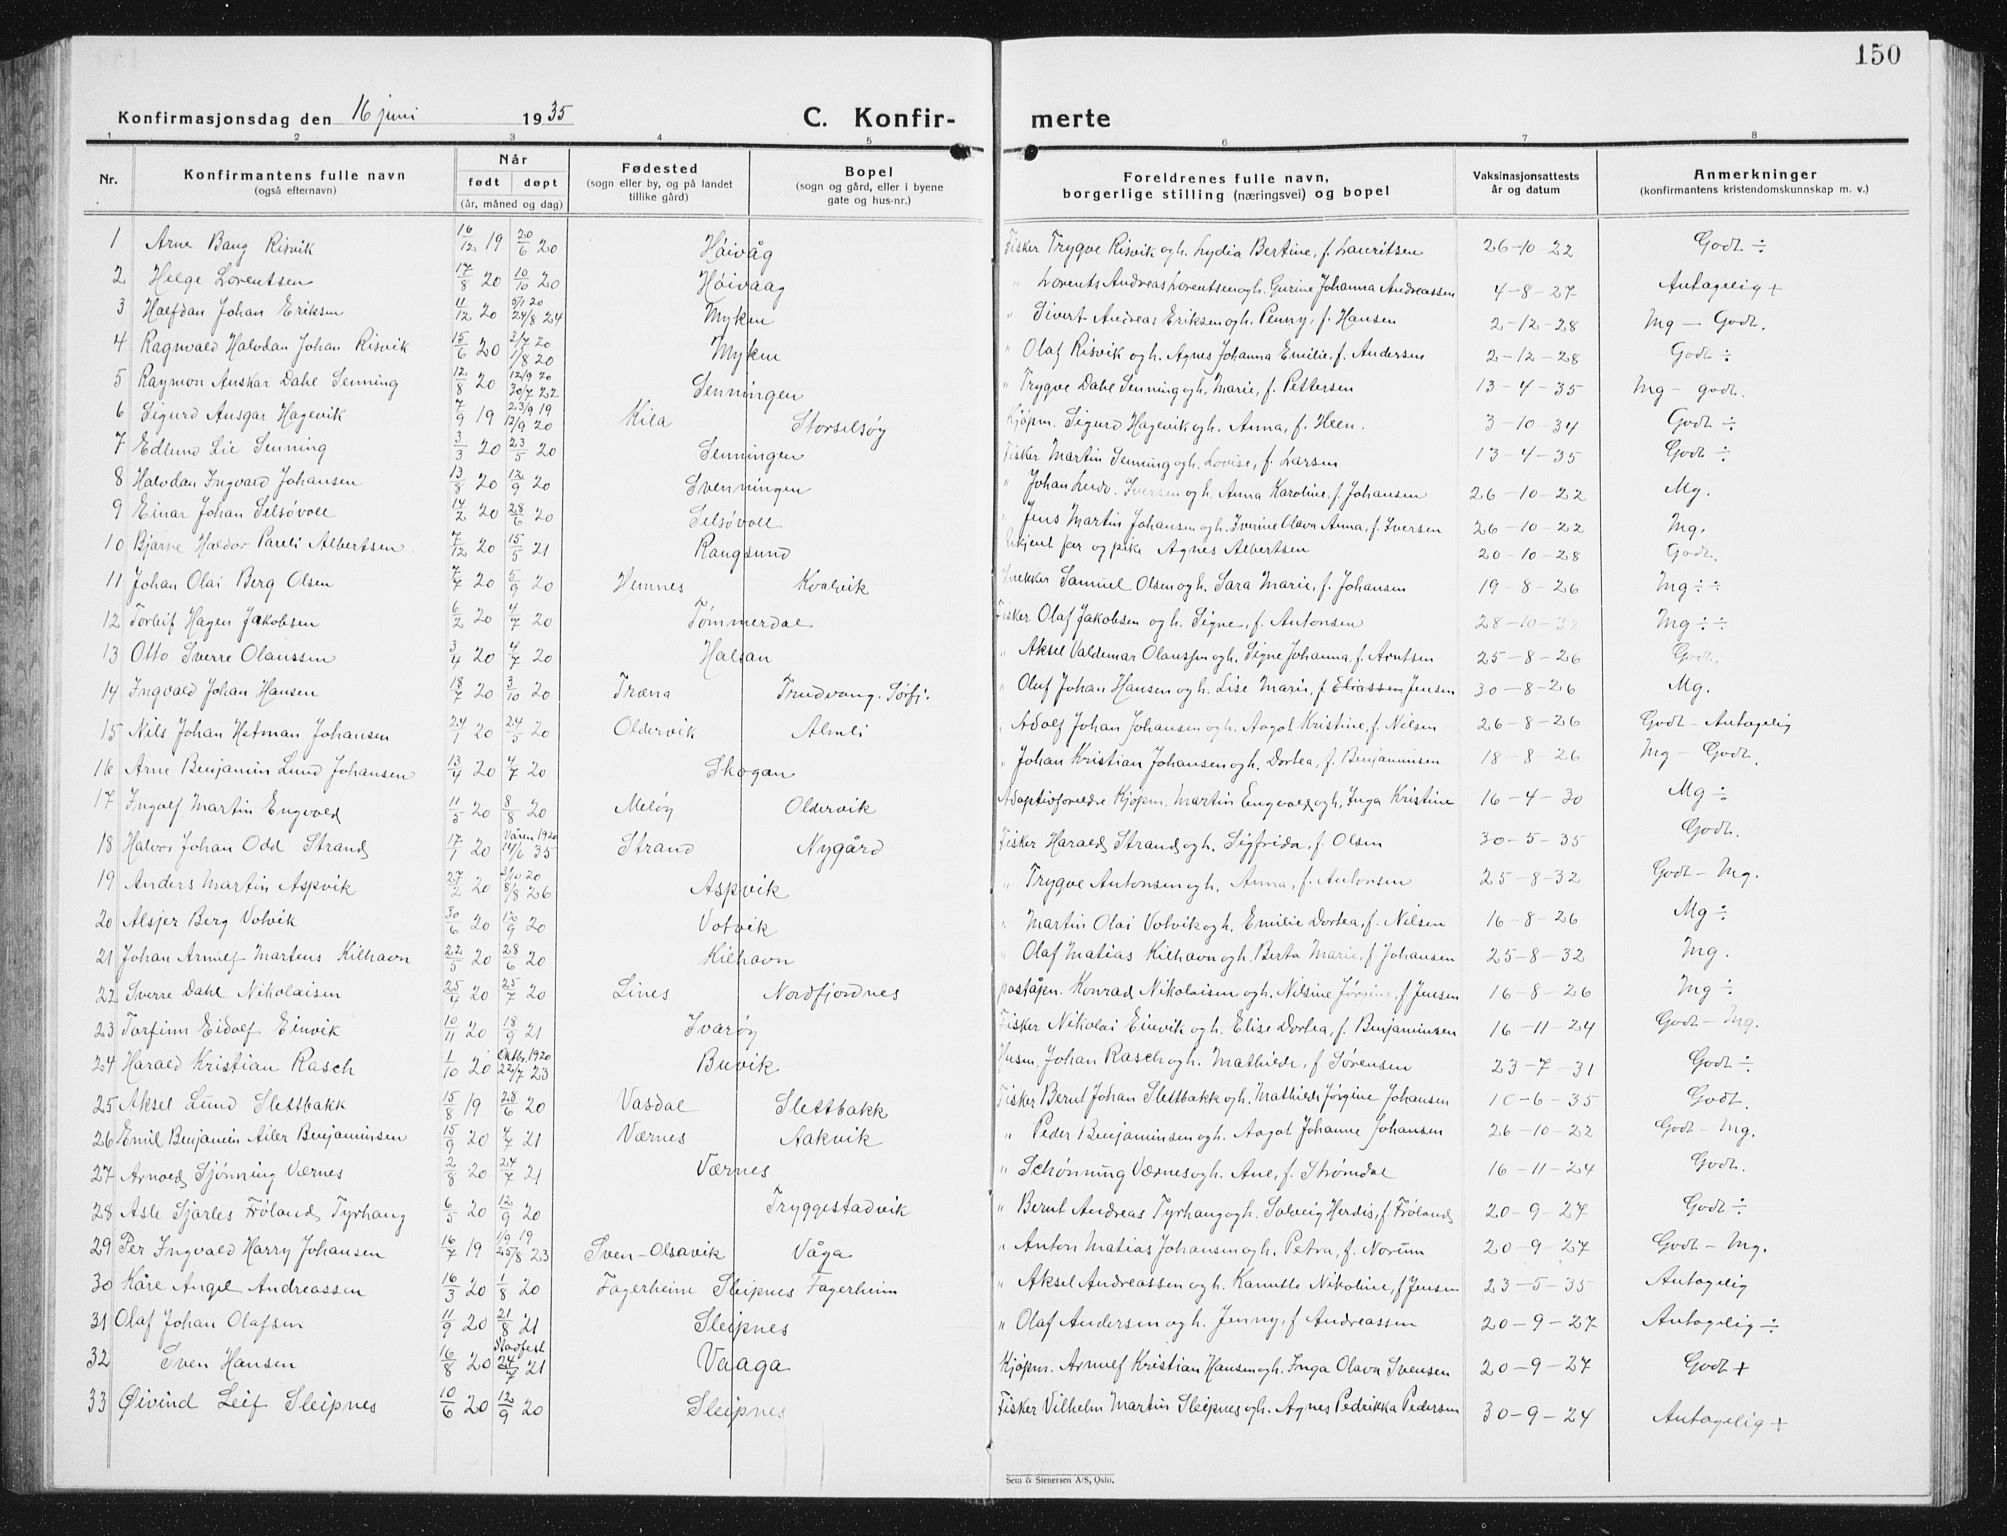 150
Konfirmasjonsdag den 16 juni 1935 C. Konfir- merte
1 2 3 4 5 6 7 8
Nr. Konfirmantens fulle navn (også efternavn) Når født døpt (år, måned og dag) Fødested (sogn eller by, og på landet tillike gård) Bopel (sogn og gård, eller i byene gate og hus-nr.) Foreldrenes fulle navn, borgerlige stilling (næringsvei) og bopel Vaksinasjonsattests år og datum Anmerkninger (konfirmantens kristendomskunnskap m. v.)
1 Arne Bang Risvik 16/12 19 20/6 20 Høivåg Fisker Trygve Risvik og h. Lydia Bertine, f. Lauritsen 26-10-22 Godt ÷
2 Helge Lorentsen 17/8 20 10/10 20 Høivaag " Lorents Andreas Lorentsen og h. Gurine Johanna Andreassen 4-8-27 Antagelig +
3 Halfdan Johan Eriksen 11/12 20 5/1 20 24/8 24 Myken " Sivert Andreas Eriksen og h. Penny, f. Hansen 2-12-28 Mg - Godt.
4 Ragnvald Halvdan Johan Risvik 15/6 20 2/7 20 1/8 20 Myken " Olaf Risvik og h. Agnes Johanna Emilie, f. Andersen 2-12-28 Godt ÷
5 Raymon Anskar Dahl Senning 12/8 20 12/9 20 30/7 22 Senningen " Trygve Dahl Senning og h. Marie, f. Pettersen 13-4-35 Mg - godt.
6 Sigurd Ansgar Hagevik 7/9 19 23/9 19 12/9 20 Kila Storselsøy Kjøpm. Sigurd Hagevik og h. Anna, f. Heen. 3-10-34 Godt ÷
7 Edlund Lie Senning 3/3 20 23/5 20 Senningen Fisker Martin Senning og h. Lovise, f. Larsen 13-4-35 Godt ÷
8 Halvdan Ingvard Johansen 13/8 20 12/9 20 Svenningen " Johan Ludv. Iversen og h. Anna Karoline, f. Johansen 26-10-22 Mg.
9 Einar Johan Selsøvoll 14/2 20 28/6 20 Selsøvoll " Jens Martin Johansen og h. Iverine Olava Anna, f. Iversen 26-10-22 Mg.
10 Bjarne Haldor Pareli Albertsen 7/12 20 15/5 21 Rangsund Ukjent far og pike Agnes Albertsen 20-10-28 Godt.
11 Johan Olai Berg Olsen 7/7 20 5/9 20 Hemnes Kvalvik Snekker Samuel Olsen og h. Sara Marie, f. Johansen 19-8-26 Mg ÷ ÷
12 Torleif Hagen Jakobsen 6/2 20 4/7 20 Tømmerdal Fisker Olaf Jakobsen og h. Signe, f. Antonsen 28-10-32 Mg ÷ ÷
13 Otto Sverre Olaussen 3/4 20 4/7 20 Halsan " Aksel Valdemar Olaussen og h. Signe Johanna, f. Arntsen 25-8-26 Godt.
14 Ingvald Johan Hansen 18/7 20 3/10 20 Træna Trudvang. Sørfj. " Oluf Johan Hansen og h. Lise Marie, f. Eliassen Jensen 30-8-26 Mg.
15 Nils Johan Hetman Johansen 24/1 20 24/5 20 Oldervik Almli " Adolf Johan Johansen og h. Aagot Kristine, f. Nilsen 26-8-26 Godt - Antagelig
16 Arne Benjamin Lund Johansen 13/4 20 4/7 20 Skogan " Johan Kristian Johansen og h. Dortea, f. Benjaminsen 18-8-26 Mg - Godt.
17 Ingolf Martin Engvold 11/5 20 8/8 20 Meløy Oldervik Adoptivforeldre Kjøpm. Martin Engvold og h. Inga Kristine 16-4-30 Mg ÷
18 Halvor Johan Odd Strand 17/1 20 Våren 1920 14/6 35 Strand Nygård Fisker Harald Strand og h. Sigfrida, f. Olsen 30-5-35 Godt.
19 Anders Martin Aspvik 27/2 20 3/10 20 8/8 26 Aspvik " Trygve Antonsen og h. Anna, f. Antonsen 25-8-32 Godt - Mg.
20 Alsjer Berg Votvik 30/6 20 12/9 20 Votvik " Martin Olai Votvik og h. Emilie Dortea, f. Nilsen 16-8-26 Mg ÷
21 Johan Arnulf Martens Kilhavn 22/5 20 28/6 20 Kilhavn " Olaf Matias Kilhavn og h. Berta Marie, f. Johansen 25-8-32 Mg.
22 Sverre Dahl Nikolaisen 25/4 20 25/7 20 Lines Nordfjordnes poståpn. Konrad Nikolaisen og h. Nilsine Jørgine, f. Jensen 16-8-26 Mg ÷
23 Torfinn Eidolf Einvik 10/11 20 18/9 21 Svarøy Fisker Nikolai Einvik og h. Elise Dortea, f. Benjaminsen 16-11-24 Godt - Mg.
24 Harald Kristian Rasch 1/10 20 Oktbr. 1920 22/7 23 Buvik Husm. Johan Rasch og h. Mathilde, f. Sørensen 23-7-31 Godt ÷
25 Aksel Lund Slettbakk 15/8 19 28/6 20 Vasdal Slettbakk Fisker Bernt Johan Slettbakk og h. Mathilde Jørgine Johansen 10-6-35 Godt.
26 Emil Benjamin Ailer Benjaminsen 15/9 20 4/7 21 Værnes Aakvik " Peder Benjaminsen og h. Aagot Johanne Johansen 26-10-22 Godt - Mg.
27 Arnold Sjønning Værnes 2/8 20 24/7 21 Værnes " Schønning Værnes og h. Ane, f. Strømdal 16-11-24 Godt.
28 Asle Sjarles Frøland Tyrhaug 6/5 20 12/9 20 Tryggestadvik " Bernt Andreas Tyrhaug og h. Solveig Herdis, f. Frøland 20-9-27 Godt ÷
29 Per Ingvald Harry Johansen 16/7 19 1/9 19 25/8 23 Sven-Olsavik Våga " Anton Matias Johansen og h. Petra, f. Norum 20-9-27 Godt - Mg.
30 Kåre Angel Andreassen 16/3 20 1/8 20 Fagerheim Sleipnes Fagerheim " Aksel Andreassen og h. Kanutte Nikoline, f. Jensen 23-5-35 Antagelig
31 Olaf Johan Olafsen 11/9 20 21/8 21 Sleipnes " Olaf Andersen og h. Jenny, f. Andreassen 20-9-27 Antagelig ÷
32 Sven Hansen 16/8 20 Stadfest 24/7 21 Vaaga Kjøpm. Arnulf Kristian Hansen og h. Inga Olava Svensen 20-9-27 Godt +
33 Øivind Leif Sleipnes 10/6 20 12/9 20 Sleipnes Fisker Vilhelm Martin Sleipnes og h. Agnes Pedrikka Pedersen 30-9-24 Antagelig +
Sem & Stenersen A/S, Oslo.